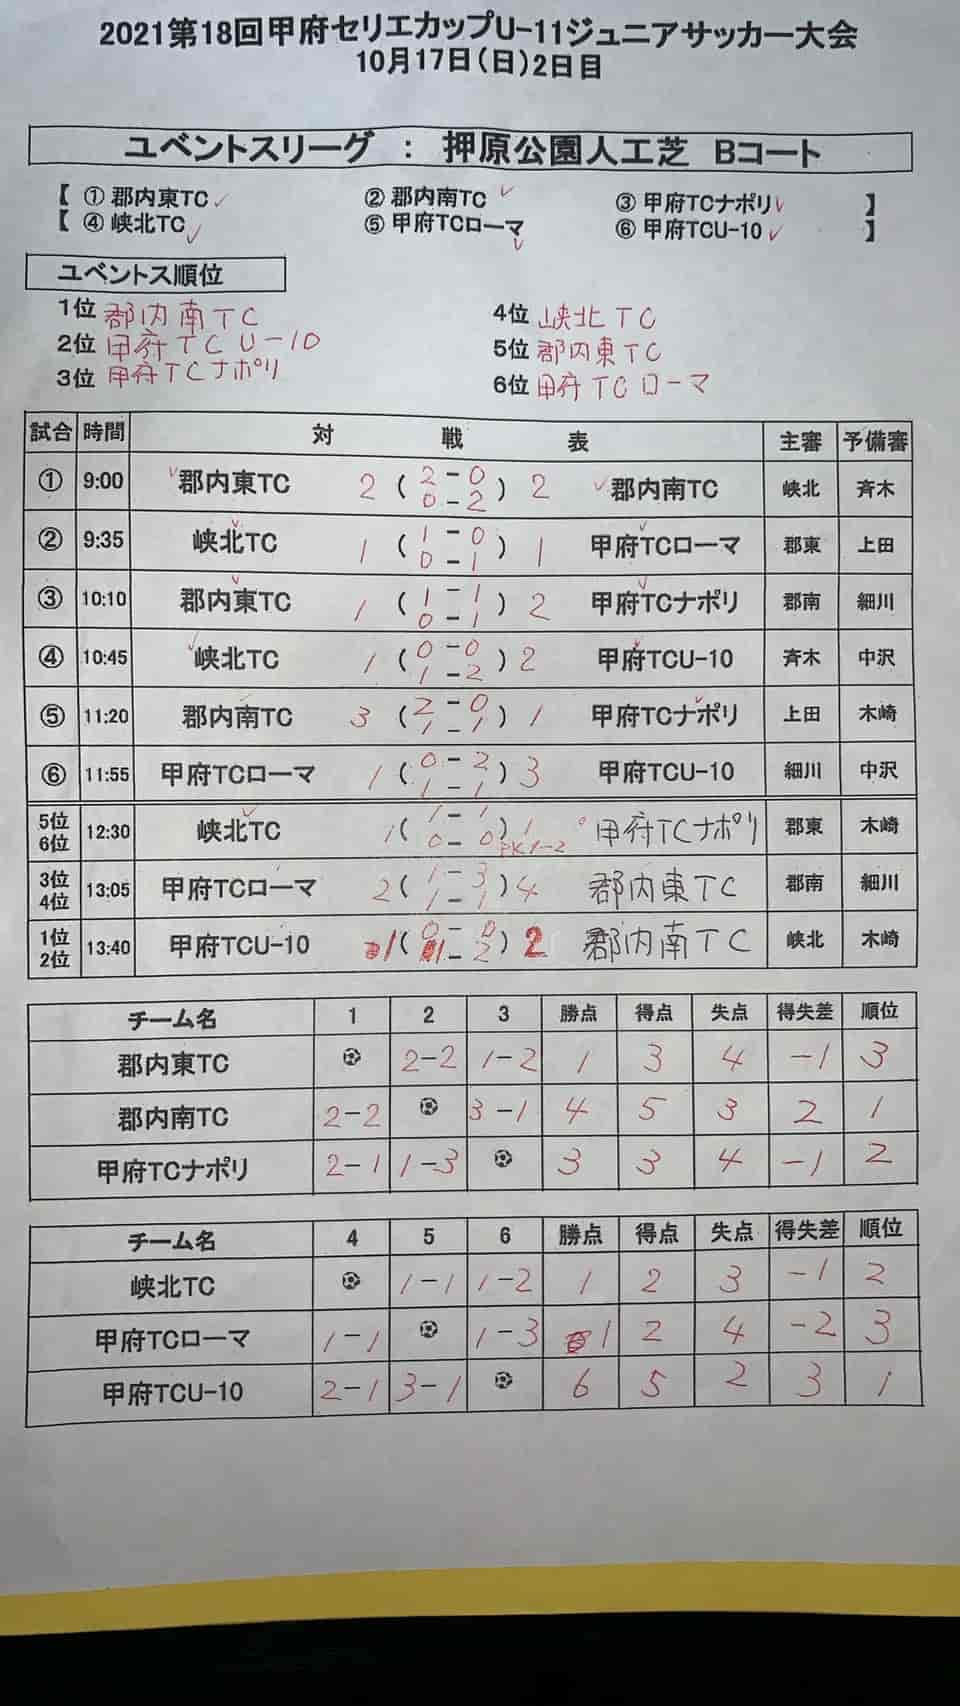 2021第18回甲府セリエカップU-11ジュニアサッカー大会
10月17日(日)2日目
ユベントスリーグ : 押原公園人工芝 Bコート
【 ① 郡内東TC ② 郡内南TC ③ 甲府TCナポリ 】
【 ④ 峡北TC ⑤ 甲府TCローマ ⑥ 甲府TCU-10 】
ユベントス順位
1位 郡内南TC 4位 峡北TC
2位 甲府TCU-10 5位 郡内東TC
3位 甲府TCナポリ 6位 甲府TCローマ
試合 時間 対 戦 表 主審 予備審
① 9:00 郡内東TC 2 ( 2-0 0-2 ) 2 郡内南TC 峡北 斉木
② 9:35 峡北TC 1 ( 1-0 0-1 ) 1 甲府TCローマ 郡東 上田
③ 10:10 郡内東TC 1 ( 1-1 0-1 ) 2 甲府TCナポリ 郡南 細川
④ 10:45 峡北TC 1 ( 0-0 1-2 ) 2 甲府TCU-10 斉木 中沢
⑤ 11:20 郡内南TC 3 ( 2-0 1-1 ) 1 甲府TCナポリ 上田 木崎
⑥ 11:55 甲府TCローマ 1 ( 0-2 1-1 ) 3 甲府TCU-10 細川 中沢
5位 6位 12:30 峡北TC 1 ( 1-1 0-0 ) 1 PK1-2 甲府TCナポリ 郡東 木崎
3位 4位 13:05 甲府TCローマ 2 ( 1-3 1-1 ) 4 郡内東TC 郡南 細川
1位 2位 13:40 甲府TCU-10 1 ( 0-0 1-2 ) 2 郡内南TC 峡北 木崎
チーム名 1 2 3 勝点 得点 失点 得失差 順位
郡内東TC 2-2 1-2 1 3 4 -1 3
郡内南TC 2-2 3-1 4 5 3 2 1
甲府TCナポリ 2-1 1-3 3 3 4 -1 2
チーム名 4 5 6 勝点 得点 失点 得失差 順位
峡北TC 1-1 1-2 1 2 3 -1 2
甲府TCローマ 1-1 1-3 1 2 4 -2 3
甲府TCU-10 2-1 3-1 6 5 2 3 1